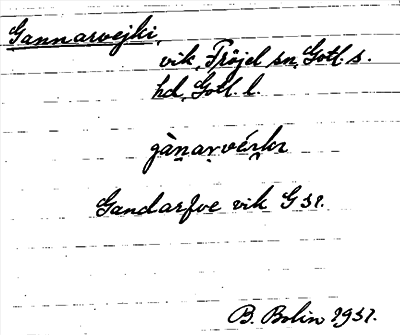 Gannarvejki,
vik, Fröjel sn, Gotl. s.
hd, Gotl. l.
gànarvèi̯kı
Gandarfve vik G 31.
B. Bolin 1931.